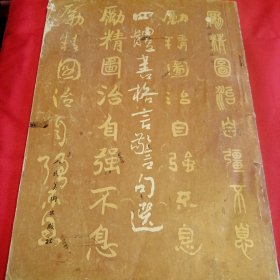 勵精圖治自彊不息
勵精圖治自強不息
四體書格言警句選
勵精圖治自强不息
勵精圖治自强不息
美術出版社